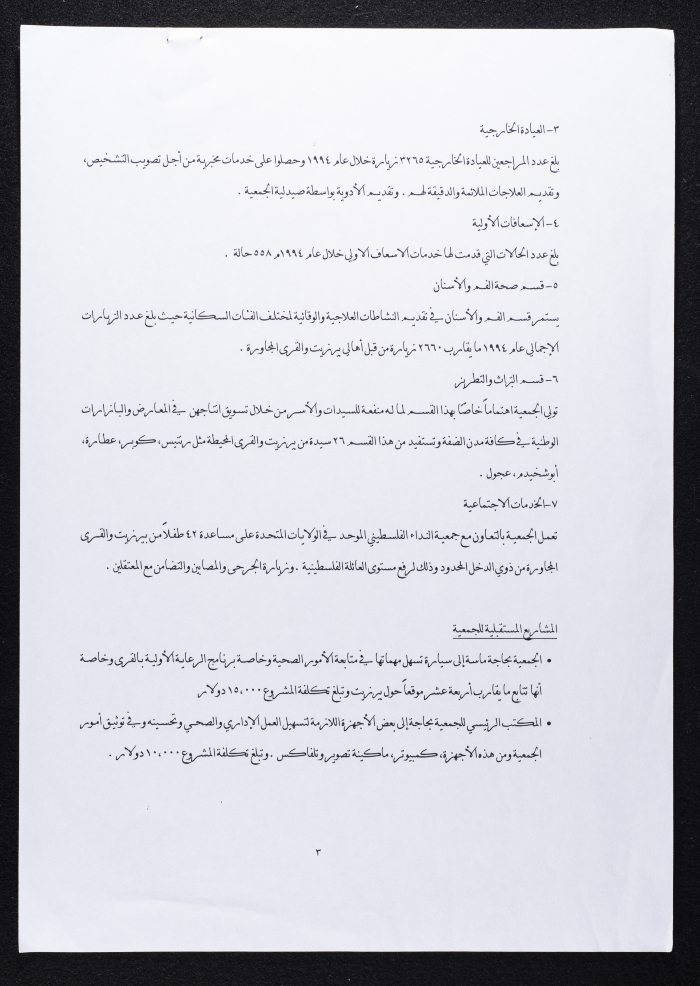 ٣- العيادة الخارجية
بلغ عدد المراجعين للعيادة الخارجية ٣٢٦٥ زيارة خلال عام ١٩٩٤ وحصلوا على خدمات مخبرية من أجل تصويب التشخيص،
وتقديم العلاجات الملائمة والدقيقة لهم . وتقديم الأدوية بواسطة صيدلية الجمعية .
٤- الإسعافات الأولية
بلغ عدد الحالات التي قدمت لها خدمات الاسعاف الاولي خلال عام ١٩٩٤م ٥٥٨ حالة .
٥- قسم صحة الفم والأسنان
يستمر قسم الفم والأسنان في تقديم النشاطات العلاجية والوقائية لمختلف الفئات السكانية حيث بلغ عدد الزيارات
الإجمالي عام ١٩٩٤ ما يقارب ٢٦٦٠ زيارة من قبل أهالي بيرزيت والقرى المجاورة .
٦- قسم التراث والتطريز
تولي الجمعية اهتماماً خاصاً بهذا القسم لما له منفعة للسيدات والأسر من خلال تسويق انتاجهن في المعارض والبازارات
الوطنية في كافة مدن الضفة وتستفيد من هذا القسم ٢٦ سيدة من بيرزيت والقرى المحيطة مثل رنتيس، كوبر، عطارة،
أبو شخيدم، عجول .
٧- الخدمات الاجتماعية
تعمل الجمعية بالتعاون مع جمعية النداء الفلسطيني الموحد في الولايات المتحدة على مساعدة ٤٢ طفلاً من بيرزيت والقرى
المجاورة من ذوي الدخل المحدود وذلك لرفع مستوى العائلة الفلسطينية . وزيارة الجرحى والمصابين والتضامن مع المعتقلين .
المشاريع المستقبلية للجمعية
• الجمعية بحاجة ماسة إلى سيارة تسهل مهماتها في متابعة الأمور الصحية وخاصة برنامج الرعاية الأولية بالقرى وخاصة
أنها تتابع ما يقارب أربعة عشر موقعاً حول بيرزيت وتبلغ تكلفة المشروع ١٥,٠٠٠ دولار
• المكتب الرئيسي للجمعية بحاجة إلى بعض الأجهزة اللازمة لتسهيل العمل الإداري والصحي وتحسينه وفي توثيق أمور
الجمعية ومن هذه الأجهزة، كمبيوتر، ماكينة تصوير وتلفاكس . وتبلغ تكلفة المشروع ١٠,٠٠٠ دولار .
٣